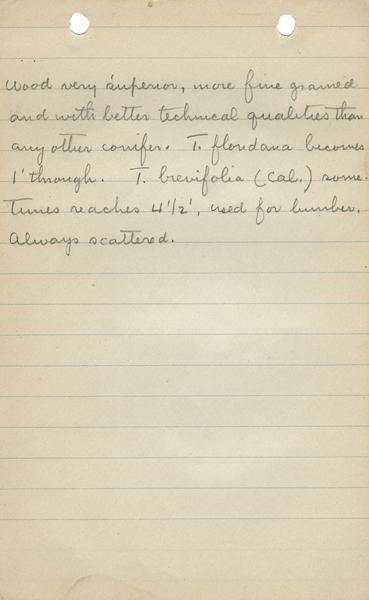 Wood very superior, more fine grained
and with better technical qualities than
any other conifer. T. floridana becomes
1' through. T. brevifolia (Cal.) some-
times reaches 4 1/2', used for lumber.
Always scattered.